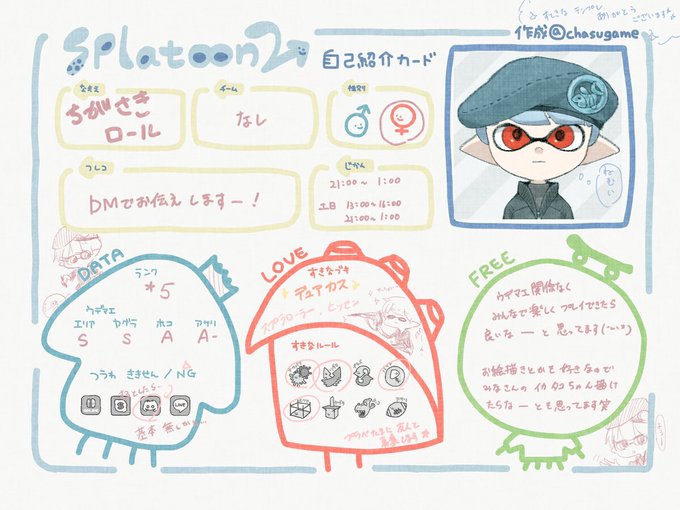 すてきなテンプレ
ありがとう
ございます
Splatoon2
自己紹介カード
作成@chasugame
なまえ
ちがさき
ロール
チーム
なし
性別
フレコ
DMでお伝えしますー!
じかん
21:00~1:00
土日 13:00~16:00
21:00~1:00
ねむい
DATA
ランク
*5
ウデマエ
エリア ヤグラ ホコ アサリ
S S A A-
つうわ ききせん/NG
LIVE
基本無し
LOVE
すきなブキ
デュアカス
スプラローラー、ヒッセン
すきなルール
プラベたまに友人と
FREE
ウデマエ関係なく
みんなで楽しくプレイできたら
良いなーと思ってます
お絵描きとかも好きなので
みなさんのイカタコちゃん描け
たらなーとも思ってます笑